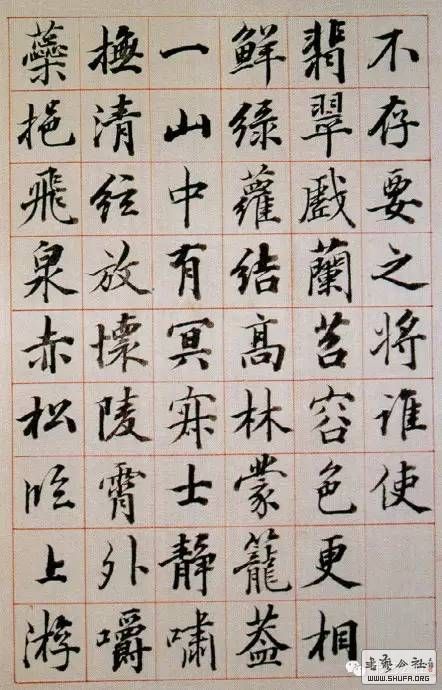 不存要之將誰使
翡翠戲蘭苕容色更相
鮮綠蘿結高林蒙籠蓋
一山中有冥寂士靜嘯
撫清絃放懷陵霄外嚼
蘂挹飛泉赤松臨上游
書藝公社
WWW.SHUFA.ORG